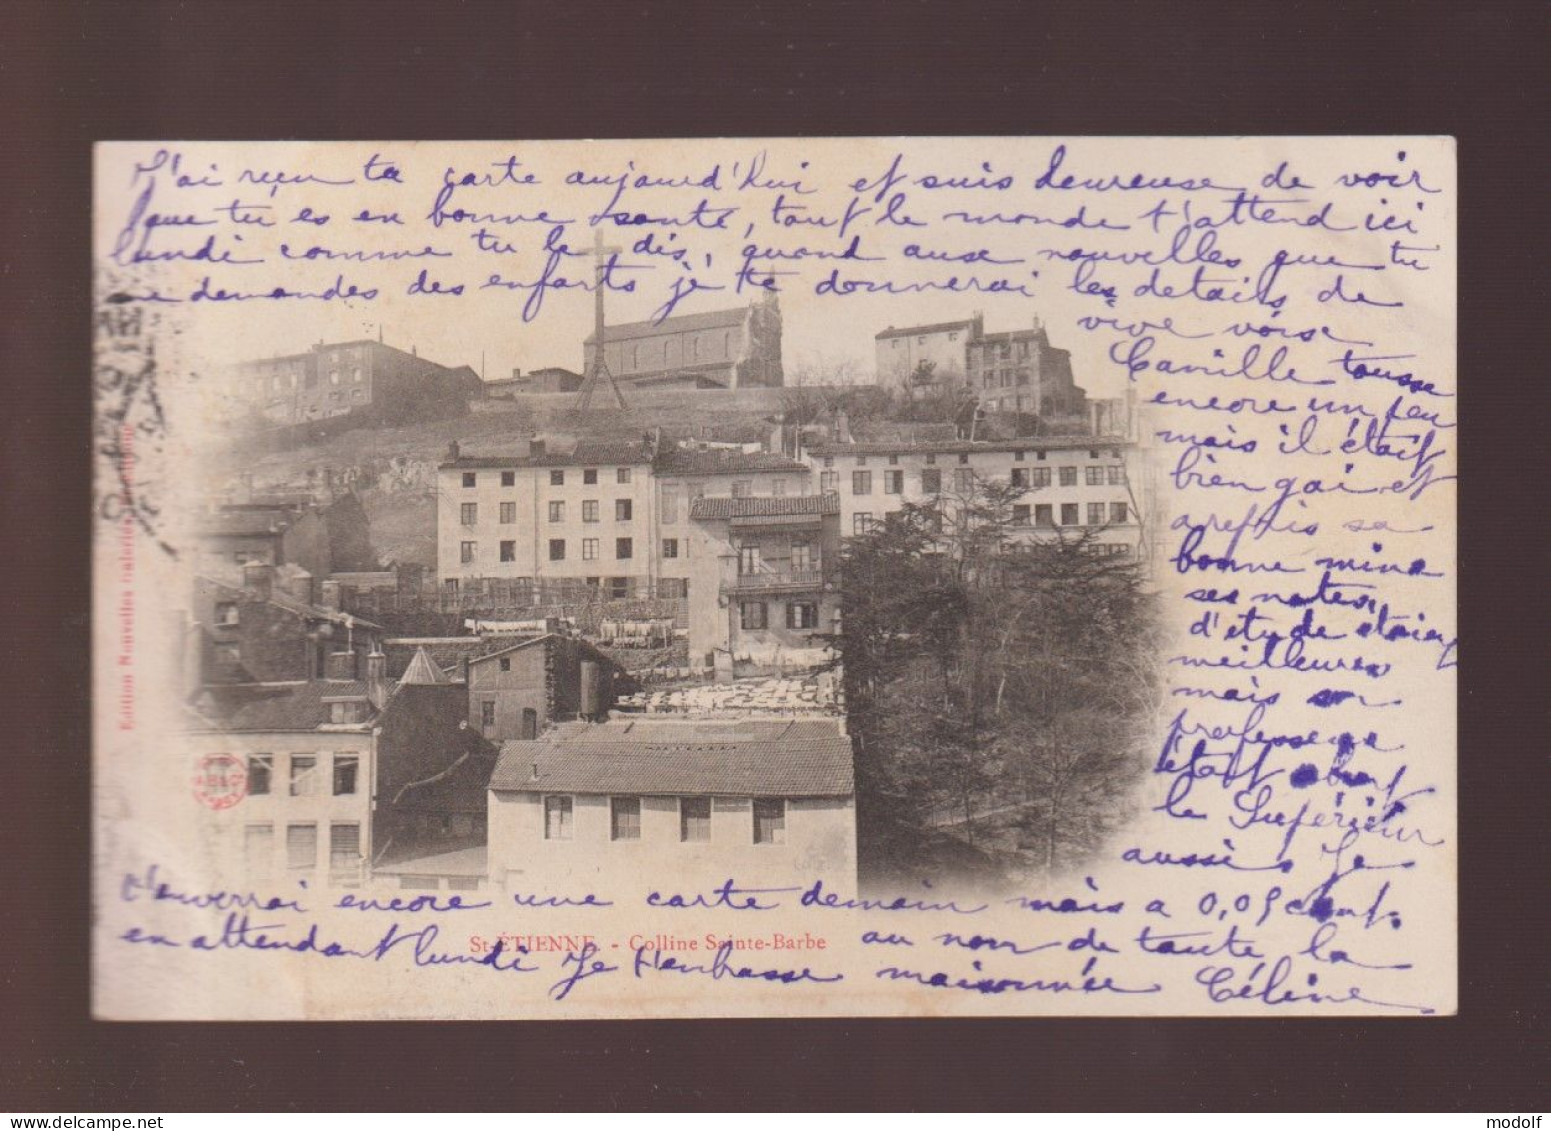 J'ai reçu ta carte aujourd'hui et suis heureuse de voir
que tu es en bonne santé, tout le monde t'attend ici
lundi comme tu le dis, quand aux nouvelles que tu
me demandes des enfants je te donnerai les details de
vive voise
Camille tousse
encore un peu
mais il était
bien gai et
a repris sa
bonne mine
ses notes
d'etude étaient
meilleures
mais son
professeur
était absent
le Supérieur
aussi Je
t'enverrai encore une carte demain mais a 0,05 cent.
en attendant lundi Je t'enbrasse au nom de toute la
maisonnée Céline
St-ÉTIENNE. - Colline Sainte-Barbe
Edition Nouvelles Galeries
modolf